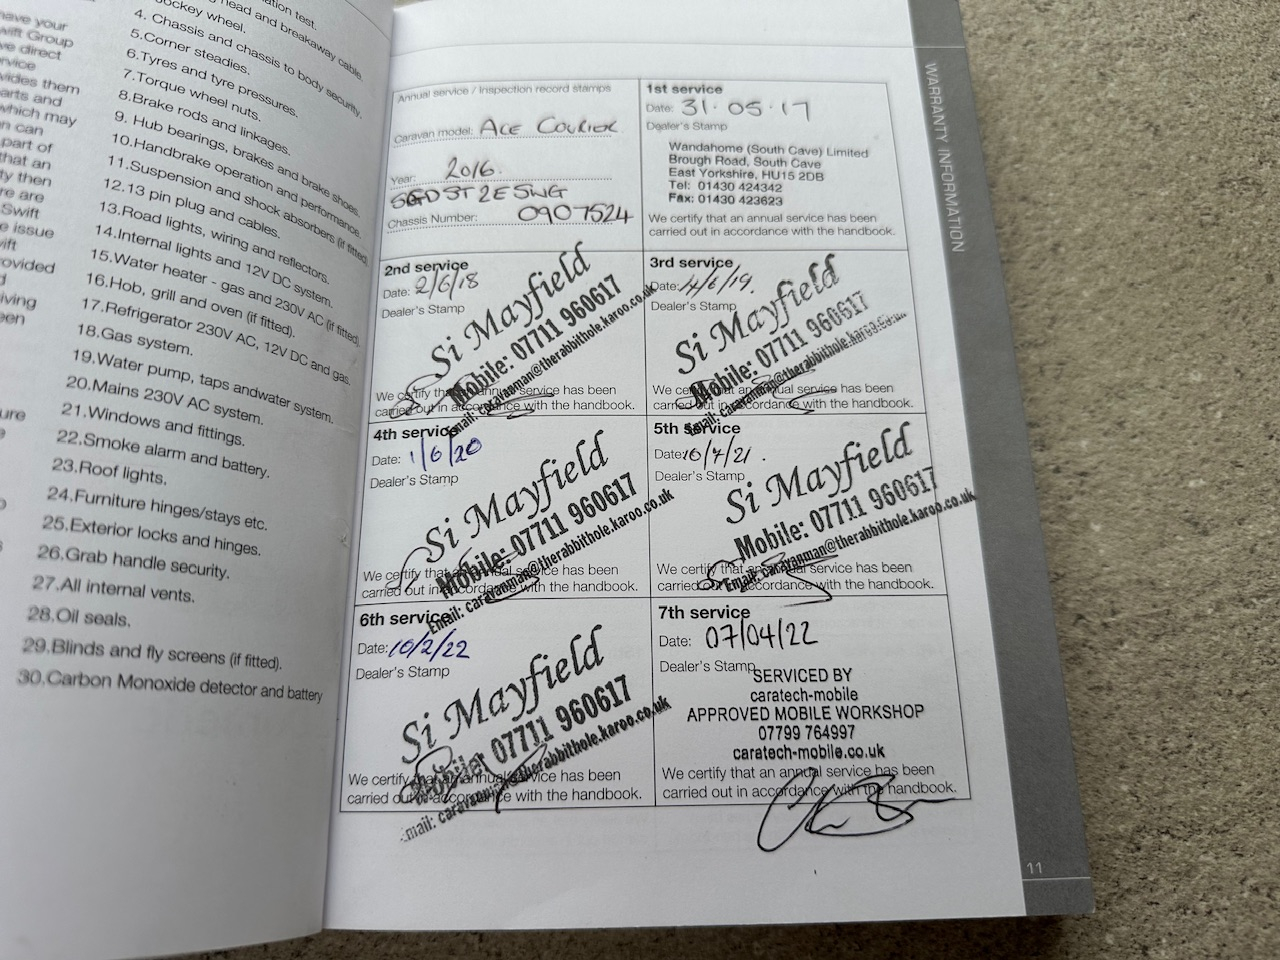 have your
Swift Group
ve direct
rvice
vides them
arts and
which may
n can
part of
that an
ty then
re are
Swift
e issue
ift
ovided
d
iving
een
ure
ation test.
head and breakaway cable
ockey wheel.
4. Chassis and chassis to body security.
5.Corner steadies.
6.Tyres and tyre pressures.
7.Torque wheel nuts.
8.Brake rods and linkages.
9. Hub bearings, brakes and brake shoes.
10.Handbrake operation and performance.
11.Suspension and shock absorbers (if fitted)
12.13 pin plug and cables.
13.Road lights, wiring and reflectors.
14.Internal lights and 12V DC system.
15.Water heater - gas and 230V AC (if fitted)
16.Hob, grill and oven (if fitted).
17.Refrigerator 230V AC, 12V DC and gas.
18.Gas system.
19.Water pump, taps andwater system.
20.Mains 230V AC system.
21.Windows and fittings.
22.Smoke alarm and battery.
23.Roof lights.
24.Furniture hinges/stays etc.
25.Exterior locks and hinges.
26.Grab handle security.
27.All internal vents.
28.Oil seals.
29.Blinds and fly screens (if fitted).
30.Carbon Monoxide detector and battery
Annual service / Inspection record stamps
Caravan model: ACE COURIER
Year: 2016.
SGDST2ESWG
Chassis Number: 0907524
1st service
Date: 31·05·17
Dealer's Stamp
Wandahome (South Cave) Limited
Brough Road, South Cave
East Yorkshire, HU15 2DB
Tel: 01430 424342
Fax: 01430 423623
We certify that an annual service has been
carried out in accordance with the handbook.
2nd service
Date: 2/6/18
Dealer's Stamp
Si Mayfield
Mobile: 07711 960617
Email: caravanman@therabbithole.karoo.co.uk
We certify that an annual service has been
carried out in accordance with the handbook.
3rd service
Date: 4/6/19.
Dealer's Stamp
Si Mayfield
Mobile: 07711 960617
Email: caravanman@therabbithole.karoo.co.uk
We certify that an annual service has been
carried out in accordance with the handbook.
4th service
Date: 1/6/20
Dealer's Stamp
Si Mayfield
Mobile: 07711 960617
Email: caravanman@therabbithole.karoo.co.uk
We certify that an annual service has been
carried out in accordance with the handbook.
5th service
Date: 16/4/21.
Dealer's Stamp
Si Mayfield
Mobile: 07711 960617
Email: caravanman@therabbithole.karoo.co.uk
We certify that an annual service has been
carried out in accordance with the handbook.
6th service
Date: 10/2/22
Dealer's Stamp
Si Mayfield
Mobile: 07711 960617
Email: caravanman@therabbithole.karoo.co.uk
We certify that an annual service has been
carried out in accordance with the handbook.
7th service
Date: 07/04/22
Dealer's Stamp
SERVICED BY
caratech-mobile
APPROVED MOBILE WORKSHOP
07799 764997
caratech-mobile.co.uk
We certify that an annual service has been
carried out in accordance with the handbook.
WARRANTY INFORMATION
11